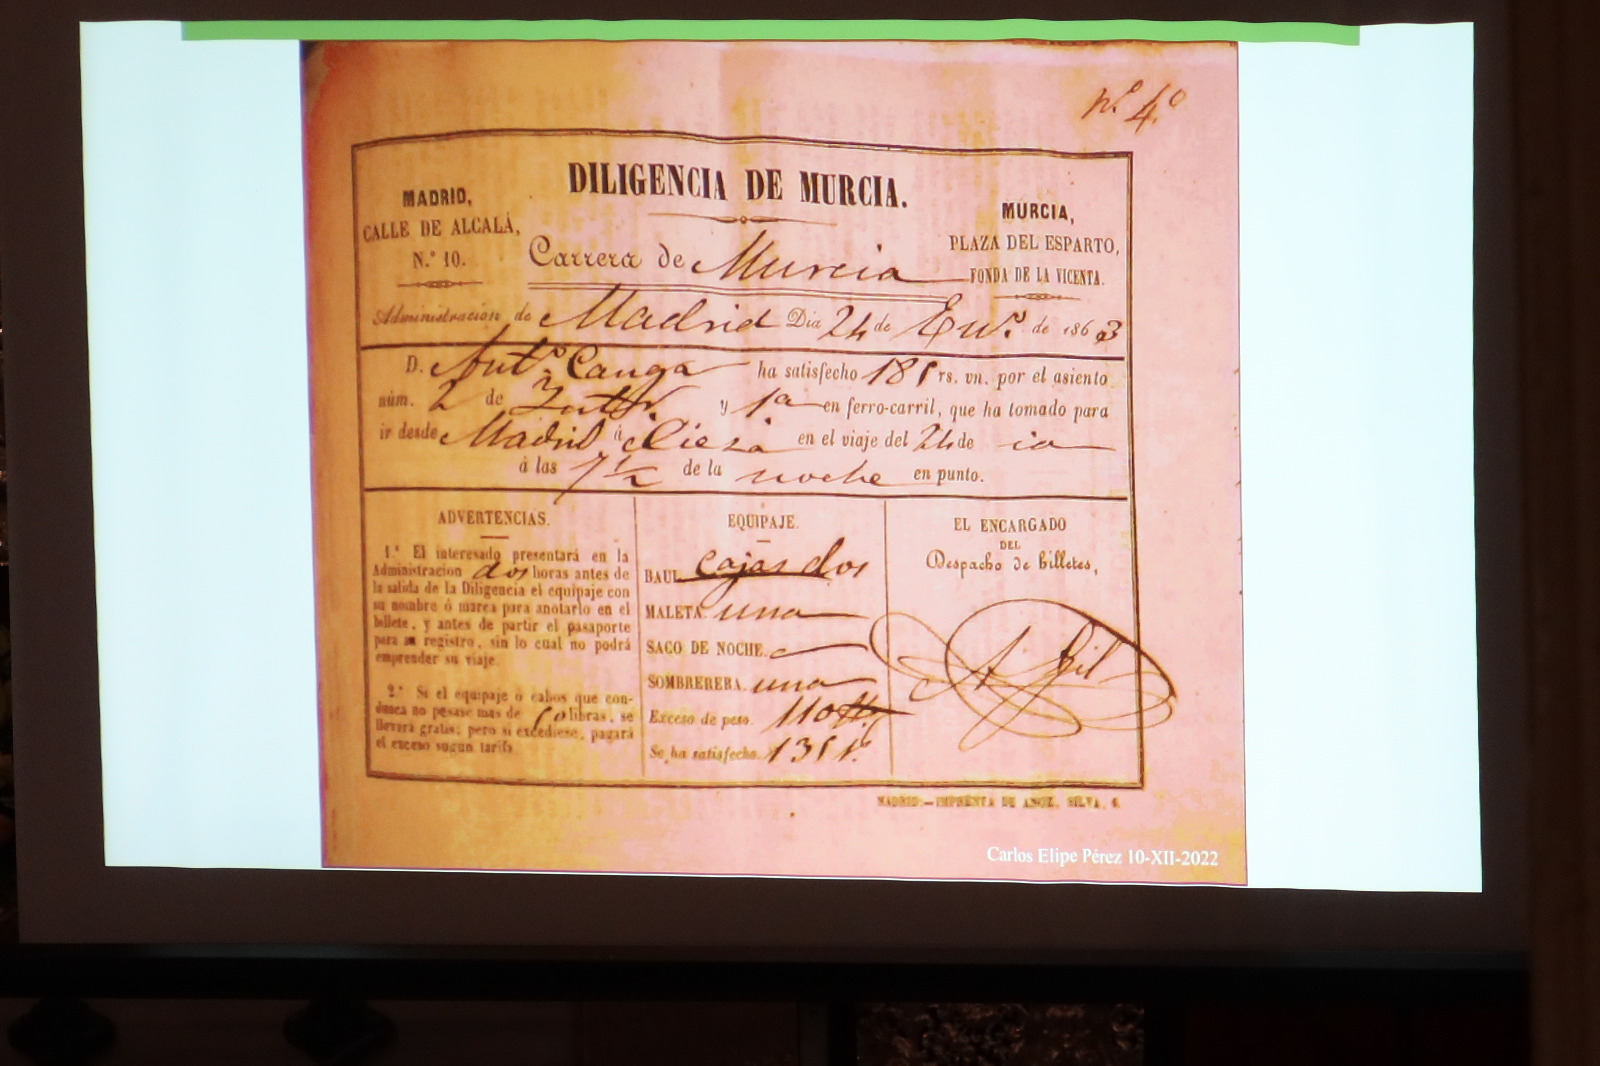 nº 4º
DILIGENCIA DE MURCIA.
MADRID,
CALLE DE ALCALÁ,
N.º 10.
MURCIA,
PLAZA DEL ESPARTO,
FONDA DE LA VICENTA.
Carrera de Murcia
Administración de Madrid Dia 24 de En.º de 1863
D. Ant.º Canga ha satisfecho 185 rs. vn. por el asiento
núm. 2 de y 1ª en ferro-carril, que ha tomado para
ir desde Madrid á Cieza en el viaje del 24 de
á las 7 1/2 de la noche en punto.
ADVERTENCIAS.
1.ª El interesado presentará en la
Administracion dos horas antes de
la salida de la Diligencia el equipaje con
su nombre ó marca para anotarlo en el
billete, y antes de partir el pasaporte
para su registro, sin lo cual no podrá
emprender su viaje.
2.ª Si el equipaje ó cabos que con-
duzca no pesase mas de 50 libras, se
llevará gratis; pero si excediese, pagará
el exceso segun tarifa
EQUIPAJE.
BAUL cajas dos
MALETA. una
SACO DE NOCHE.
SOMBRERERA. una
Exceso de peso. 110
Se ha satisfecho. 135
EL ENCARGADO
DEL
Despacho de billetes,
A Gil
MADRID:—IMPRENTA DE ANOZ, SILVA, 6.
Carlos Elipe Pérez 10-XII-2022